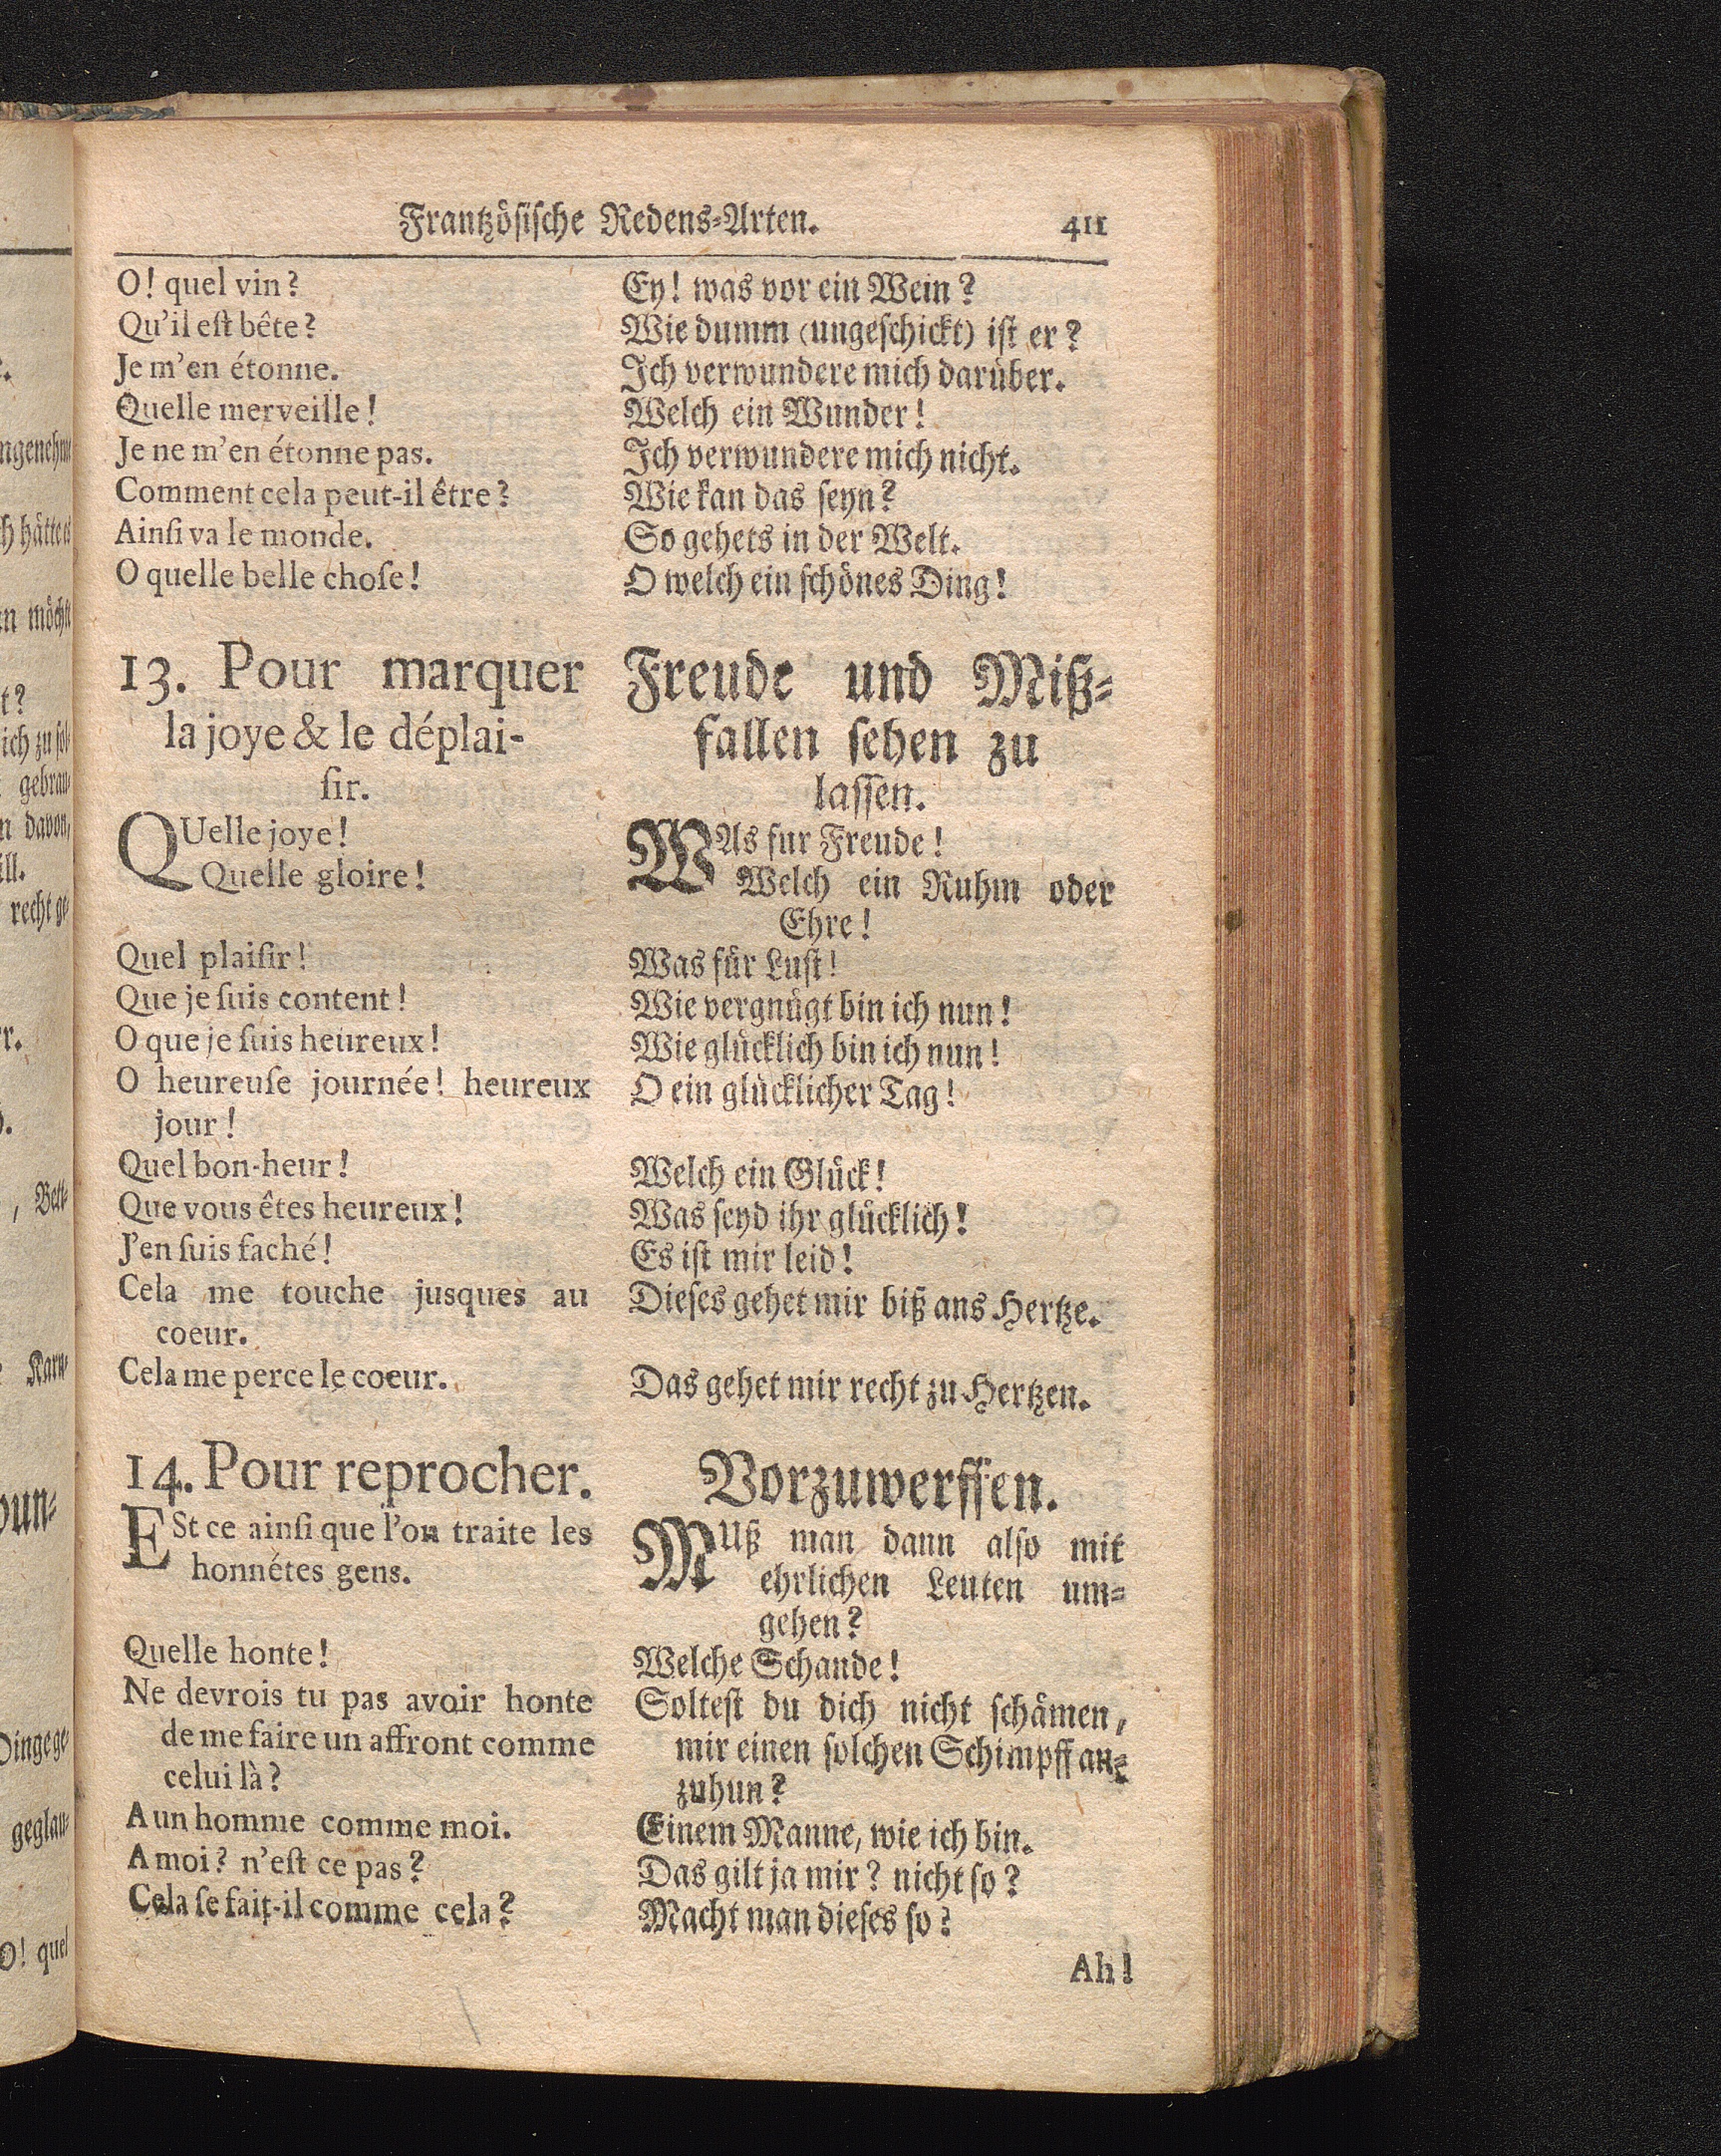 Frantzösische Redens-Arten. 411
O! quel vin?
Qu'il eſt bête?
Je m'en étonne.
Quelle merveille!
Je ne m'en étonne pas.
Comment cela peut-il être?
Ainſi va le monde.
O quelle belle choſe!
13. Pour marquer
la joye & le déplai-
ſir.
QUelle joye!
Quelle gloire!
Quel plaiſir!
Que je ſuis content!
O que je ſuis heureux!
O heureuſe journée! heureux
jour!
Quel bon-heur!
Que vous êtes heureux!
J'en ſuis faché!
Cela me touche jusques au
coeur.
Cela me perce le coeur.
14. Pour reprocher.
ESt ce ainſi que l'on traite les
honnétes gens.
Quelle honte!
Ne devrois tu pas avoir honte
de me faire un affront comme
celui là?
A un homme comme moi.
A moi? n'eſt ce pas?
Cela ſe fait-il comme cela?
Ey! was vor ein Wein?
Wie dumm (ungeſchickt) iſt er?
Ich verwundere mich darüber.
Welch ein Wunder!
Ich verwundere mich nicht.
Wie kan das ſeyn?
So gehets in der Welt.
O welch ein ſchönes Ding!
Freude und Miß-
fallen ſehen zu
laſſen.
WAs fur Freude!
Welch ein Ruhm oder
Ehre!
Was für Luſt!
Wie vergnügt bin ich nun!
Wie glücklich bin ich nun!
O ein glücklicher Tag!
Welch ein Glück!
Was ſeyd ihr glücklich!
Es iſt mir leid!
Dieſes gehet mir biß ans Hertze.
Das gehet mir recht zu Hertzen.
Vorzuwerffen.
MUß man dann alſo mit
ehrlichen Leuten um-
gehen?
Welche Schande!
Solteſt du dich nicht ſchämen,
mir einen ſolchen Schimpff an-
zuhun?
Einem Manne, wie ich bin.
Das gilt ja mir? nicht ſo?
Macht man dieſes ſo?
Ah!